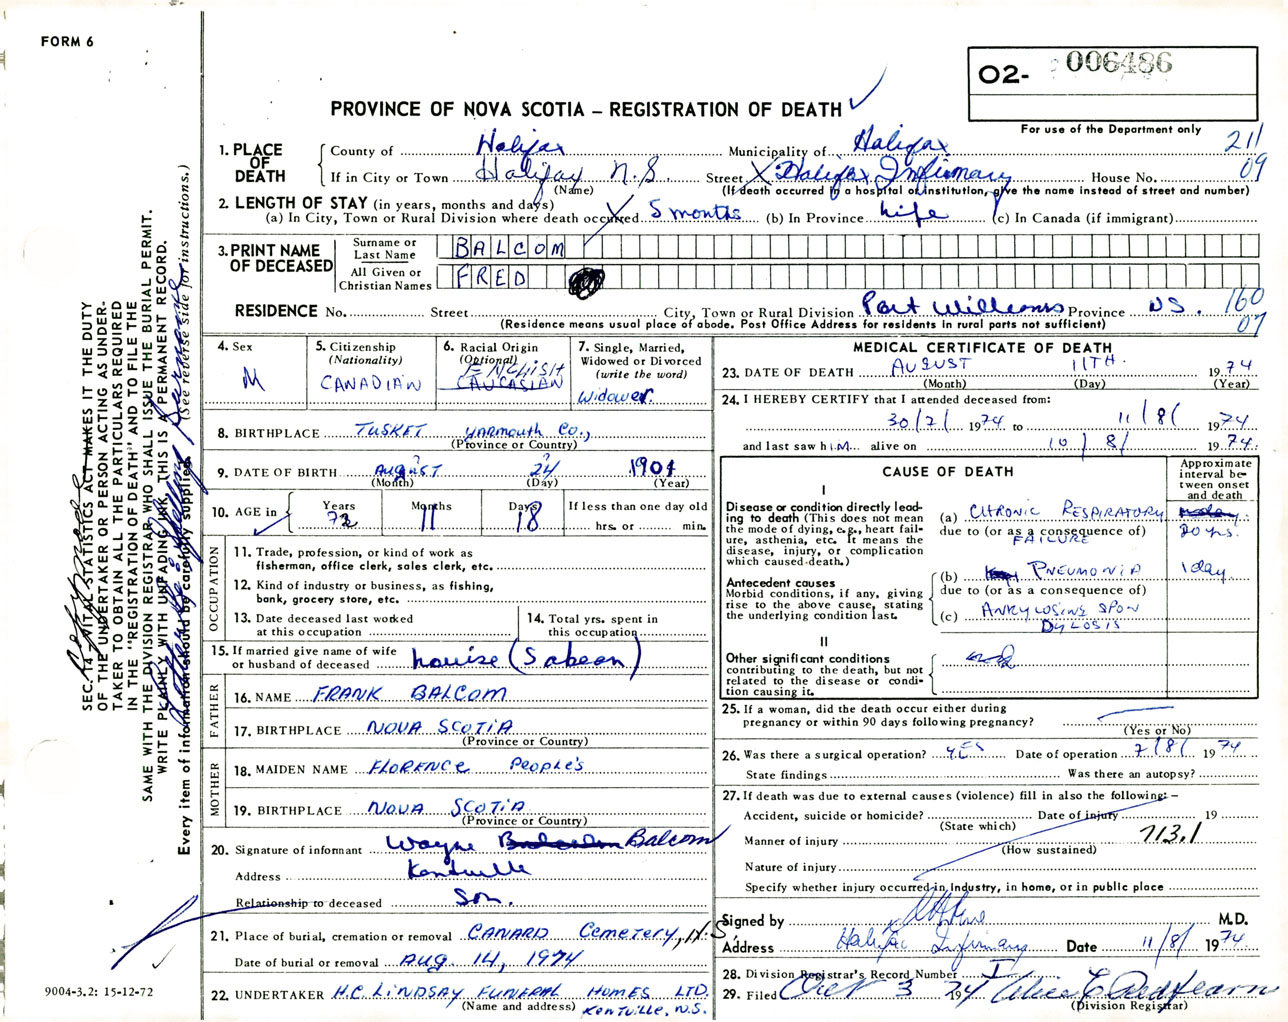 FORM 6
O2- 006486
PROVINCE OF NOVA SCOTIA – REGISTRATION OF DEATH
For use of the Department only
211
09
1. PLACE OF DEATH
County of Halifax Municipality of Halifax
If in City or Town Halifax N.S. Street Halifax Infirmary House No.
(Name) (If death occurred in a hospital or institution, give the name instead of street and number)
2. LENGTH OF STAY (in years, months and days)
(a) In City, Town or Rural Division where death occurred 5 months (b) In Province Life (c) In Canada (if immigrant)
3. PRINT NAME OF DECEASED
Surname or Last Name BALCOM
All Given or Christian Names FRED
RESIDENCE No. Street City, Town or Rural Division Port Williams Province NS. 160
07
(Residence means usual place of abode. Post Office Address for residents in rural parts not sufficient)
4. Sex
M
5. Citizenship
(Nationality)
CANADIAN
6. Racial Origin
(Optional)
ENGLISH
CAUCASIAN
7. Single, Married,
Widowed or Divorced
(write the word)
Widower.
8. BIRTHPLACE TUSKET YARMOUTH Co.,
(Province or Country)
9. DATE OF BIRTH AUGUST 24 1901
(Month) (Day) (Year)
10. AGE in
Years Months Days If less than one day old
11 18 hrs. or min.
OCCUPATION
11. Trade, profession, or kind of work as
fisherman, office clerk, sales clerk, etc.
12. Kind of industry or business, as fishing,
bank, grocery store, etc.
13. Date deceased last worked
at this occupation
14. Total yrs. spent in
this occupation
15. If married give name of wife
or husband of deceased Louise (Sabean)
FATHER
16. NAME FRANK BALCOM
17. BIRTHPLACE NOVA SCOTIA
(Province or Country)
MOTHER
18. MAIDEN NAME FLORENCE PEOPLE'S
19. BIRTHPLACE NOVA SCOTIA
(Province or Country)
20. Signature of informant Wayne Balcom
Address Kentville
Relationship to deceased Son.
21. Place of burial, cremation or removal CANARD Cemetery, N.S.
Date of burial or removal AUG. 14, 1974
22. UNDERTAKER H.C. LINDSAY FUNERAL HOMES LTD.
(Name and address) KENTVILLE, N.S.
MEDICAL CERTIFICATE OF DEATH
23. DATE OF DEATH AUGUST 11TH. 1974
(Month) (Day) (Year)
24. I HEREBY CERTIFY that I attended deceased from:
30/2/ 1974 to 11/8/ 1974
and last saw hIM alive on 10/8/ 1974.
CAUSE OF DEATH
Approximate interval between onset and death
I
Disease or condition directly leading to death (This does not mean the mode of dying, e. g., heart failure, asthenia, etc. It means the disease, injury, or complication which caused death.)
(a) CHRONIC RESPIRATORY 20 yrs.
due to (or as a consequence of)
FAILURE
Antecedent causes
Morbid conditions, if any, giving rise to the above cause, stating the underlying condition last.
(b) PNEUMONIA 1 day
due to (or as a consequence of)
(c) ANKYLOSING SPON
DYLOSIS
II
Other significant conditions
contributing to the death, but not related to the disease or condition causing it.
25. If a woman, did the death occur either during
pregnancy or within 90 days following pregnancy?
(Yes or No)
26. Was there a surgical operation? YES Date of operation 7/8/ 1974
State findings Was there an autopsy?
27. If death was due to external causes (violence) fill in also the following: –
Accident, suicide or homicide? Date of injury 19
(State which)
Manner of injury 713.1
(How sustained)
Nature of injury
Specify whether injury occurred in Industry, in home, or in public place
Signed by M.D.
Address Halifax Infirmary Date 11/8/ 1974
28. Division Registrar's Record Number I
29. Filed Oct 3 1974 Alice E Redfearn
(Division Registrar)
SEC. 14. VITAL STATISTICS ACT MAKES IT THE DUTY
OF THE UNDERTAKER OR PERSON ACTING AS UNDERTAKER TO OBTAIN ALL THE PARTICULARS REQUIRED
IN THE "REGISTRATION OF DEATH" AND TO FILE THE
SAME WITH THE DIVISION REGISTRAR WHO SHALL ISSUE THE BURIAL PERMIT.
WRITE PLAINLY WITH UNFADING INK, THIS IS A PERMANENT RECORD.
Every item of information should be carefully supplied. (See reverse side for instructions.)
9004-3.2: 15-12-72